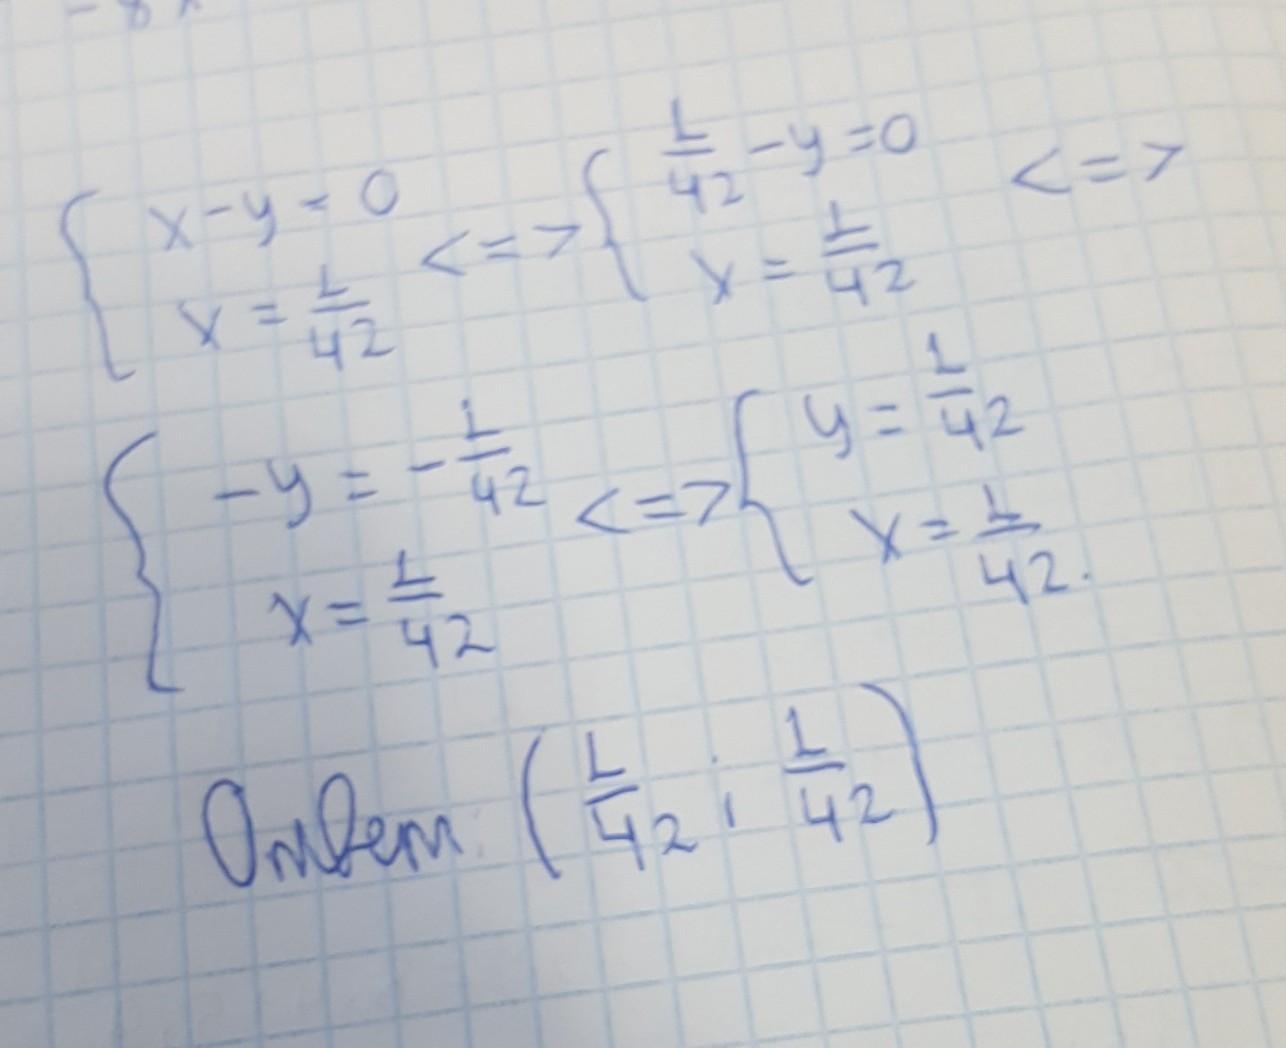 - 8x
{ x - y = 0
x = 1/42 <=> { 1/42 - y = 0
x = 1/42 <=>
{ -y = - 1/42
x = 1/42 <=> { y = 1/42
x = 1/42.
Ответ: (1/42; 1/42)